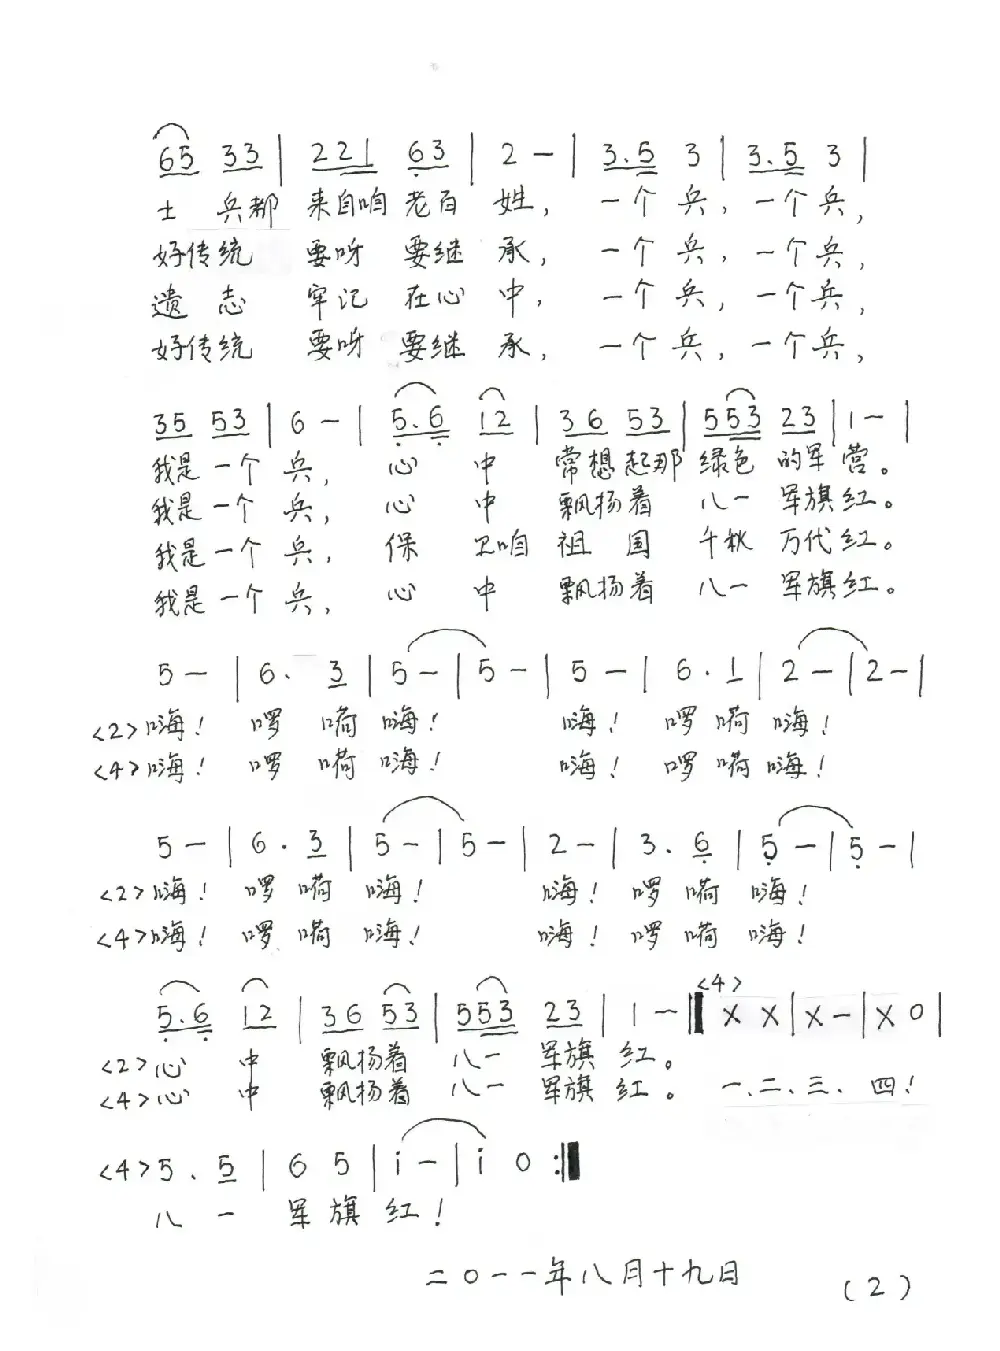 65 33 | 221 63 | 2 — | 3.5 3 | 3.5 3 |
士 兵都 来自咱 老百 姓, 一个 兵, 一个 兵,
好传统 要呀 要继 承, 一个 兵, 一个 兵,
遗 志 牢记 在心 中, 一个 兵, 一个 兵,
好传统 要呀 要继 承, 一个 兵, 一个 兵,
35 53 | 6 — | 5.6 12 | 36 53 | 553 23 | 1 — |
我是 一个 兵, 心 中 常想 起那 绿色 的军 营。
我是 一个 兵, 心 中 飘扬着 八一 军旗 红。
我是 一个 兵, 保 卫咱 祖 国 千秋 万代 红。
我是 一个 兵, 心 中 飘扬着 八一 军旗 红。
5 — | 6. 3 | 5 — | 5 — | 5 — | 6. 1 | 2 — | 2 — |
<2>嗨! 啰 嗬 嗨! 嗨! 啰 嗬 嗨!
<4>嗨! 啰 嗬 嗨! 嗨! 啰 嗬 嗨!
5 — | 6. 3 | 5 — | 5 — | 2 — | 3. 6 | 5 — | 5 — |
<2>嗨! 啰 嗬 嗨! 嗨! 啰 嗬 嗨!
<4>嗨! 啰 嗬 嗨! 嗨! 啰 嗬 嗨!
<4>
5.6 12 | 36 53 | 553 23 | 1 — ‖ X X | X — | X 0 |
<2>心 中 飘扬着 八一 军旗 红。
<4>心 中 飘扬着 八一 军旗 红。 一、二、三、四!
<4>5. 5 | 6 5 | i — | i 0 :‖
八 一 军 旗 红!
二〇一一年八月十九日
(2)